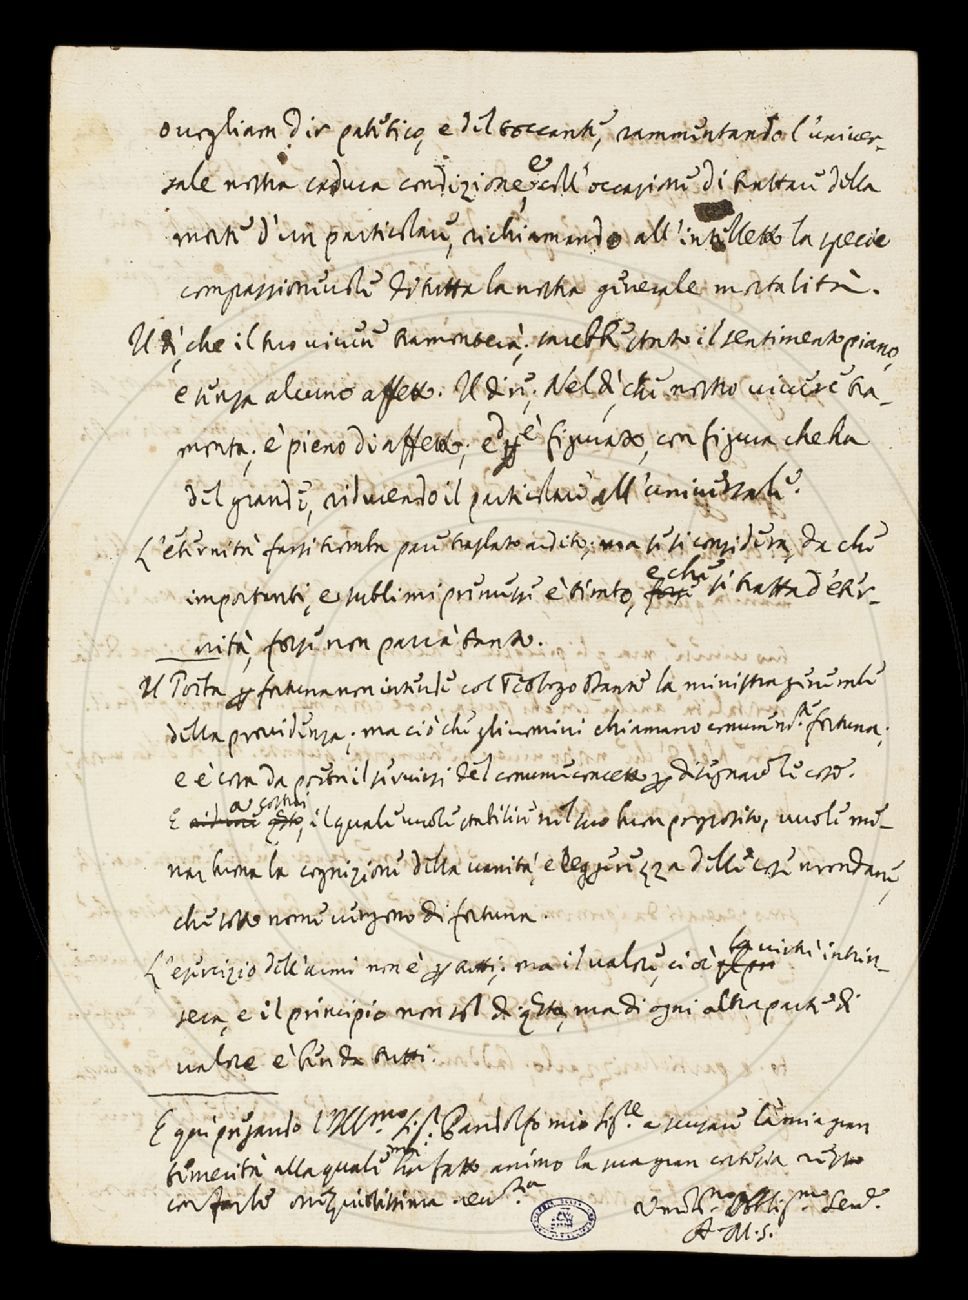 o vogliam dir patetico, e del toccante, rammentando l'univer-
sale nostra caduca condizione, e coll'occasione di trattare della
morte d'un particolare, richiamando all'intelletto la specie
compassionevole di tutta la nostra generale mortalità.
Il dì, che il tuo vivere tramonterà; sarebbe stato il sentimento piano,
e senza alcuno affetto. Il dire; Nel dì, che nostro vivere tra-
monta; è pieno di affetto; ed è figurato, con figura che ha
del grande, riducendo il particolare all'universale.
L'eternità farsi tromba pare traslato ardito; ma se si considera, da che
importanti, e sublimi premesse è tirato, forse e che si tratta d'eter-
nità, forse non parrà tanto.
Il Poeta per fortuna non intende col Teologo Dante la ministra generale
della providenza; ma ciò che gli uomini chiamano comunemte. fortuna;
e è cosa da poeta il servirsi del comune concetto per disegnare le cose.
E a costui, il quale vuole stabilire nel suo buon proposito, vuole me-
nar buona la cognizione della vanità, e leggerezza delle cose mondane,
che sotto nome vengono di fortuna.
L'esercizio dell'armi non è per tutti; ma il valore, cioè la virtù intrin-
seca, e il principio non sol di questo, ma di ogni altra parte di
valore è ben da tutti.
E quì pregando l'Illmo. Sigr. Pandolfo mio Sigre. a scusare la mia gran
temerità alla quale m'ha fatto animo la sua gran cortesia resto
con farle ossequiosissima revza
Umilmo. Obbligmo. Serve.
A. M. S.